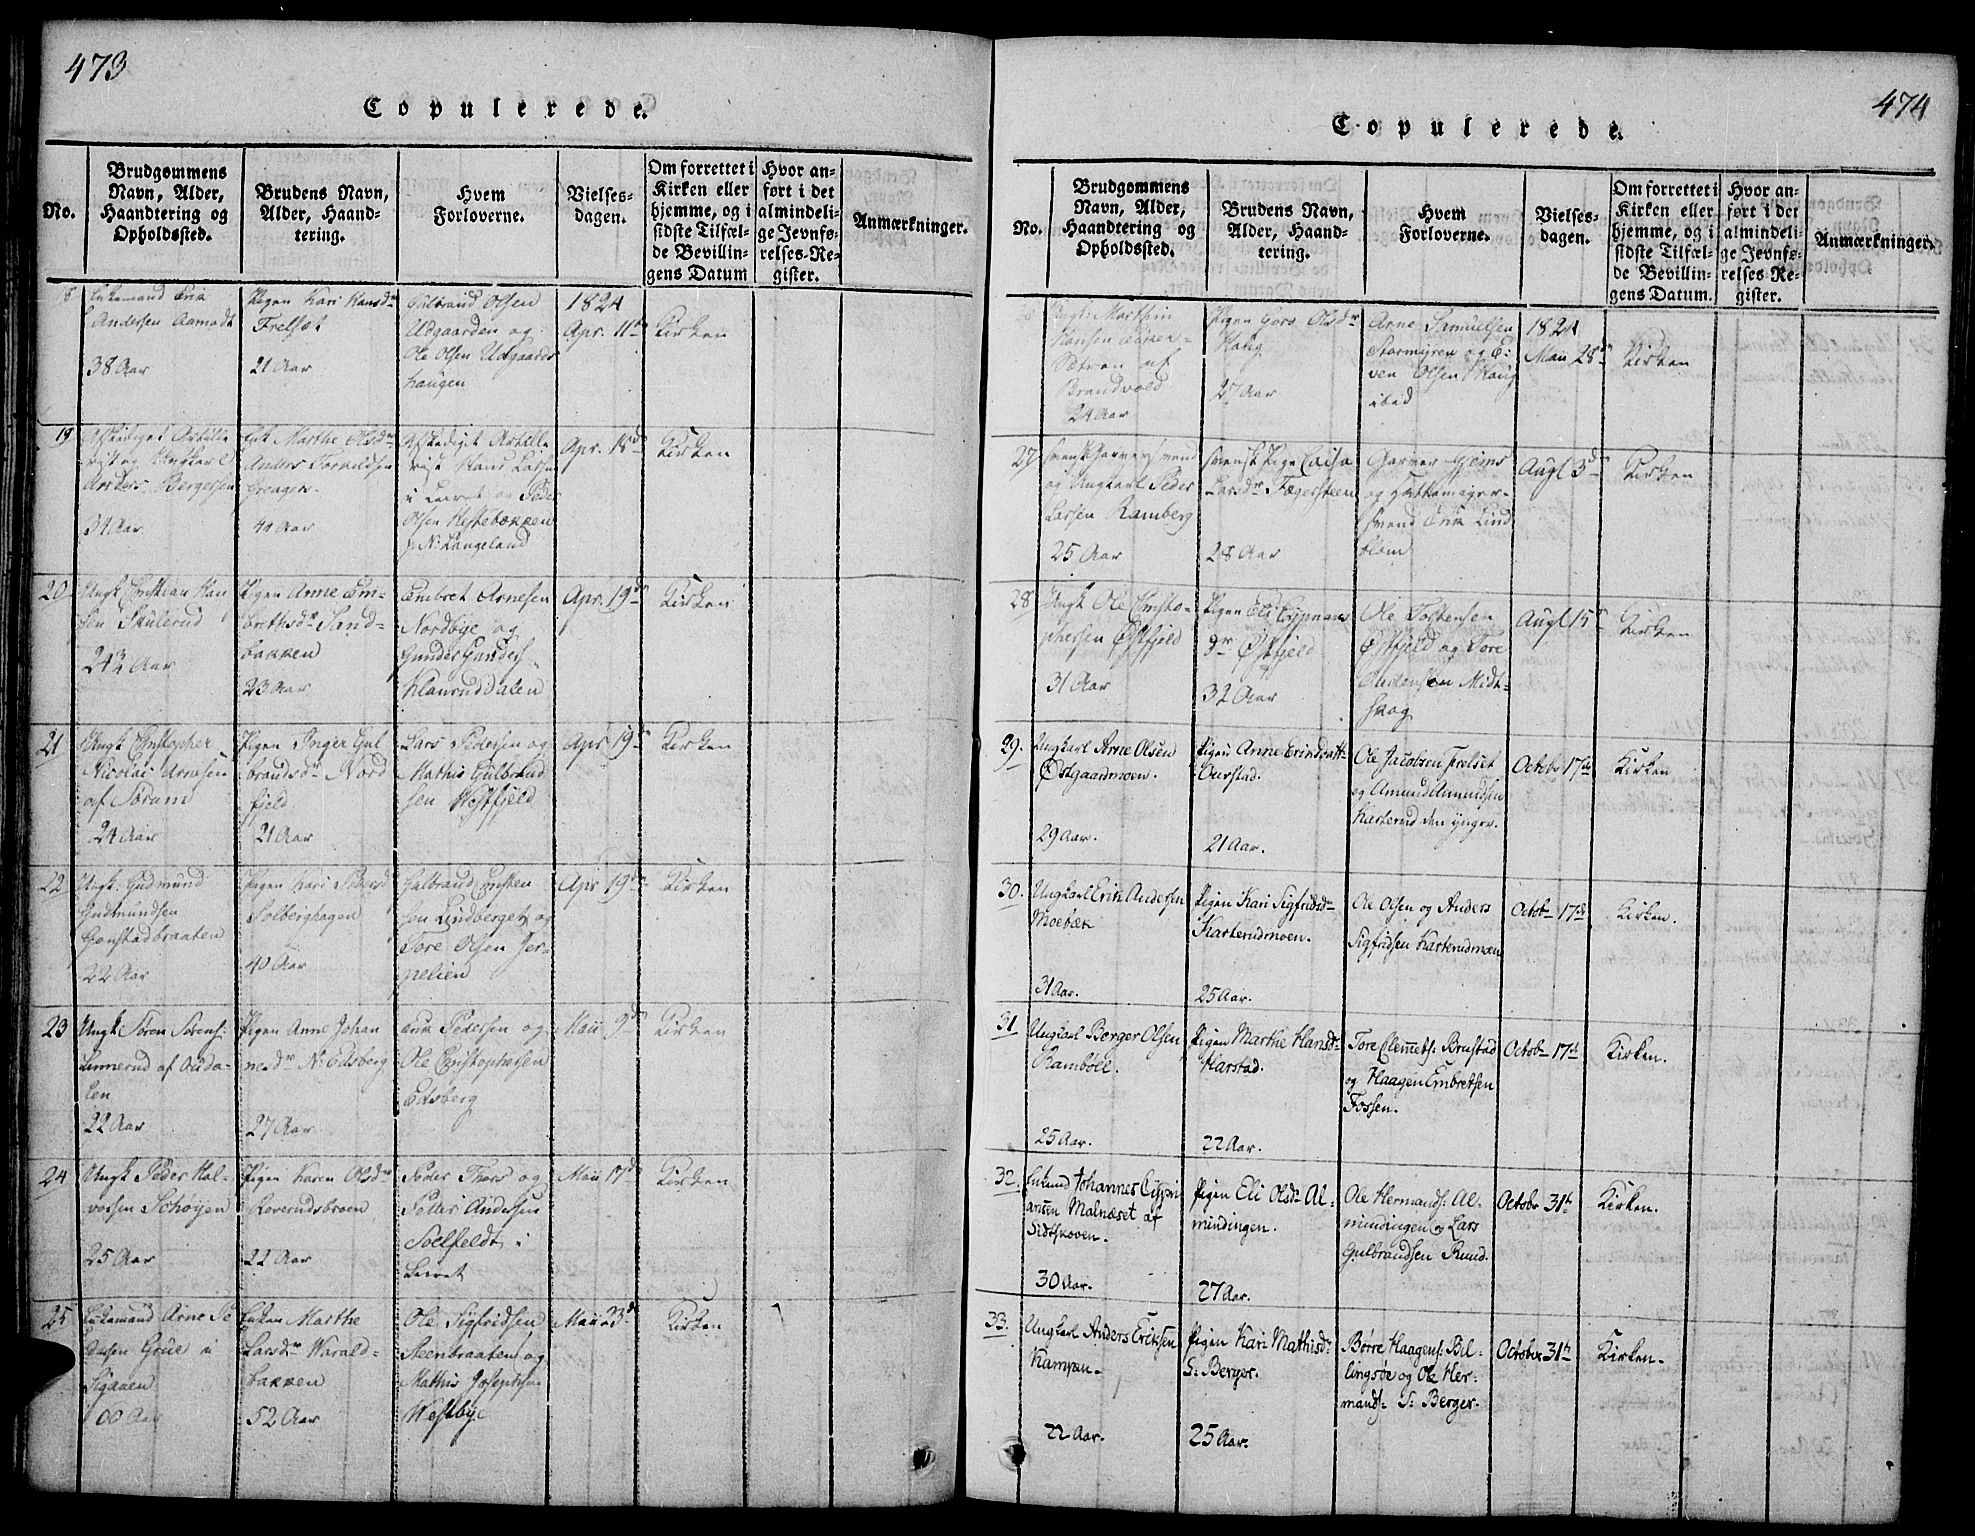 473
Copulerede.
No.
Brudgommens
Navn, Alder,
Haandtering og
Opholdssted.
Brudens Navn,
Alder, Haand-
tering.
Hvem
Forloverne.
Vielses-
dagen.
Om forrettet i
Kirken eller
hjemme, og i
sidste Tilfæl-
de Bevillin-
gens Datum
Hvor an-
ført i det
almindeli-
ge Jevnfø-
relses-Re-
gister.
Anmærkninger.
Enkemand Erik
Andersen Aamodt
38 Aar
Pigen Kari Hansdr
Frelsæt
21 Aar
Gulbrand Olsen
Udgaarden og
Ole Olsen Udgaards
haugen
1824
Apr. 11te
Kirken
19
Afskediget Artille
rist og Ungkarl
Anders Bergersen
31 Aar
Enk Marthe Olsdr
Anders Torkildsen
Greager
44 Aar
Afskediget Artille
rist Hans Larsen
i Leiret og Peder
Olsen Hestebækken
p. N: Langeland
Apr. 18de
Kirken
20
Ungk Christian Han
sen Skulerud
24½ Aar
Pigen Anne Em-
brethsdr Sand-
bakken
23 Aar
Embret Arnesen
Nordbye og
Gunder Gunders.
Klanruddalen
Apr. 19de
Kirken
21
Ungk Christopher
Nicolai Arnesen
af Sørum
24 Aar
Pigen Inger Gul
brandsdr Nord
fjeld
21 Aar
Lars Pedersen og
Mathis Gulbrand
sen Westfjeld
Apr 19de
Kirken
22
Ungk. Gudmund
Gudmundsen
Gonstadbraaten
22 Aar
Pigen Kari Pedersd
Solberghagen
40 Aar
Gulbrand Christen
sen Lindberget og
Tore Olsen Jer-
pelien
Apr 19de
Kirken
23
Ungk Søren Sørens:
Linnerud af Auda-
len
22 Aar
Pigen Anne Johan
nesdr N: Edsberg
27 Aar
Erik Pedersen og
Ole Christophersen
Edsberg
Maii 9de
Kirken
24
Ungk Peder Hal-
vorsen Schøyen
25 Aar
Pigen Karen Olsdr
Roverudsbroen
22 Aar
Peder Thors og
Petter Andersen
Soelfeldt i
Leiret
Maii 17de
Kirken
25
Enkemand Arne Pe
dersen Grue i
Sigaaen
Enken Marthe
Larsdr Warald-
bakken
52 Aar
Ole Sigfridsen
Steenbraaten og
Mathis Josephsen
Westbye
Maii 23de
Kirken
474
Copulerede.
No.
Brudgommens
Navn, Alder,
Haandtering og
Opholdssted.
Brudens Navn,
Alder, Haand-
tering.
Hvem
Forloverne.
Vielses-
dagen.
Om forrettet i
Kirken eller
hjemme, og i
sidste Tilfæl-
de Bevillin-
gens Datum.
Hvor an-
ført i det
almindeli-
ge Jevnfø-
relses Re-
gister.
Anmærkninger.
Ungk: Marthin
Hansen
af
Brandvold
24 Aar
Pigen Goro Olsdr
Haug
27 Aar
Arne Samuelsen
Stormyren og E:
ven Olsen Haug
ibid
1824
Maii 28de
Kirken
27
svensk Garversvend
og Ungkarl Peder
Larsen Ramberg
25 Aar
svensk Pige Caisa
Larsdr Fægersteen
28 Aar
Garver Heins
og Hattemager-
svend Erik Lind
blom
Augl 3de
Kirken
28
Ungk Ole Christo-
phersen Østfjeld
31 Aar
Pigen Eli Cyprians
dr Østfjeld
32 Aar
Ole Tostensen
Østfjeld og Tore
Audensen Midt-
skog
Augl 15de
Kirken
29.
Ungkarl Arne Olsen
Østgaardmoen.
29 Aar.
Pigen Anne Erindsdtt
Ourstad.
21 Aar.
Ole Jacobsen Frelset
og Amund Amundsen
Karterud den yngre.
Octobr 17de
Kirken
30.
Ungkarl Erik Andersen
Moebæk
31 Aar.
Pigen Kari Sigfridsdr
Karterudmoen.
25 Aar.
Ole Olsen og Anders
Sigfridsen Karterudmoen
Octobr 17de
Kirken.
31
Ungkarl Berger Olsen
Rambøll.
25 Aar.
Pigen Marthe Hansdr
Harstad.
22 Aar.
Tore Clemets: Brustad
og Haagen Embretsen
Fossen.
Octobr 17de
Kirken.
32.
Enkemd Johannes Cipri
ansen Malnæset af
Sidtskoven.
30 Aar.
Pigen Eli Olsdr Al-
mindingen.
27 Aar.
Ole Hermands: Al-
mindingen og Lars
Gulbrandsen Rund.
Octobr 31te
Kirken.
33.
Ungkarl Anders Eriksen
Kampen.
22 Aar.
Pigen Kari Mathisdr
S: Berger.
25 Aar.
Børre Haagens: Bil-
lingsøe og Ole Her-
mands: S: Berger.
October 31te
Kirken.